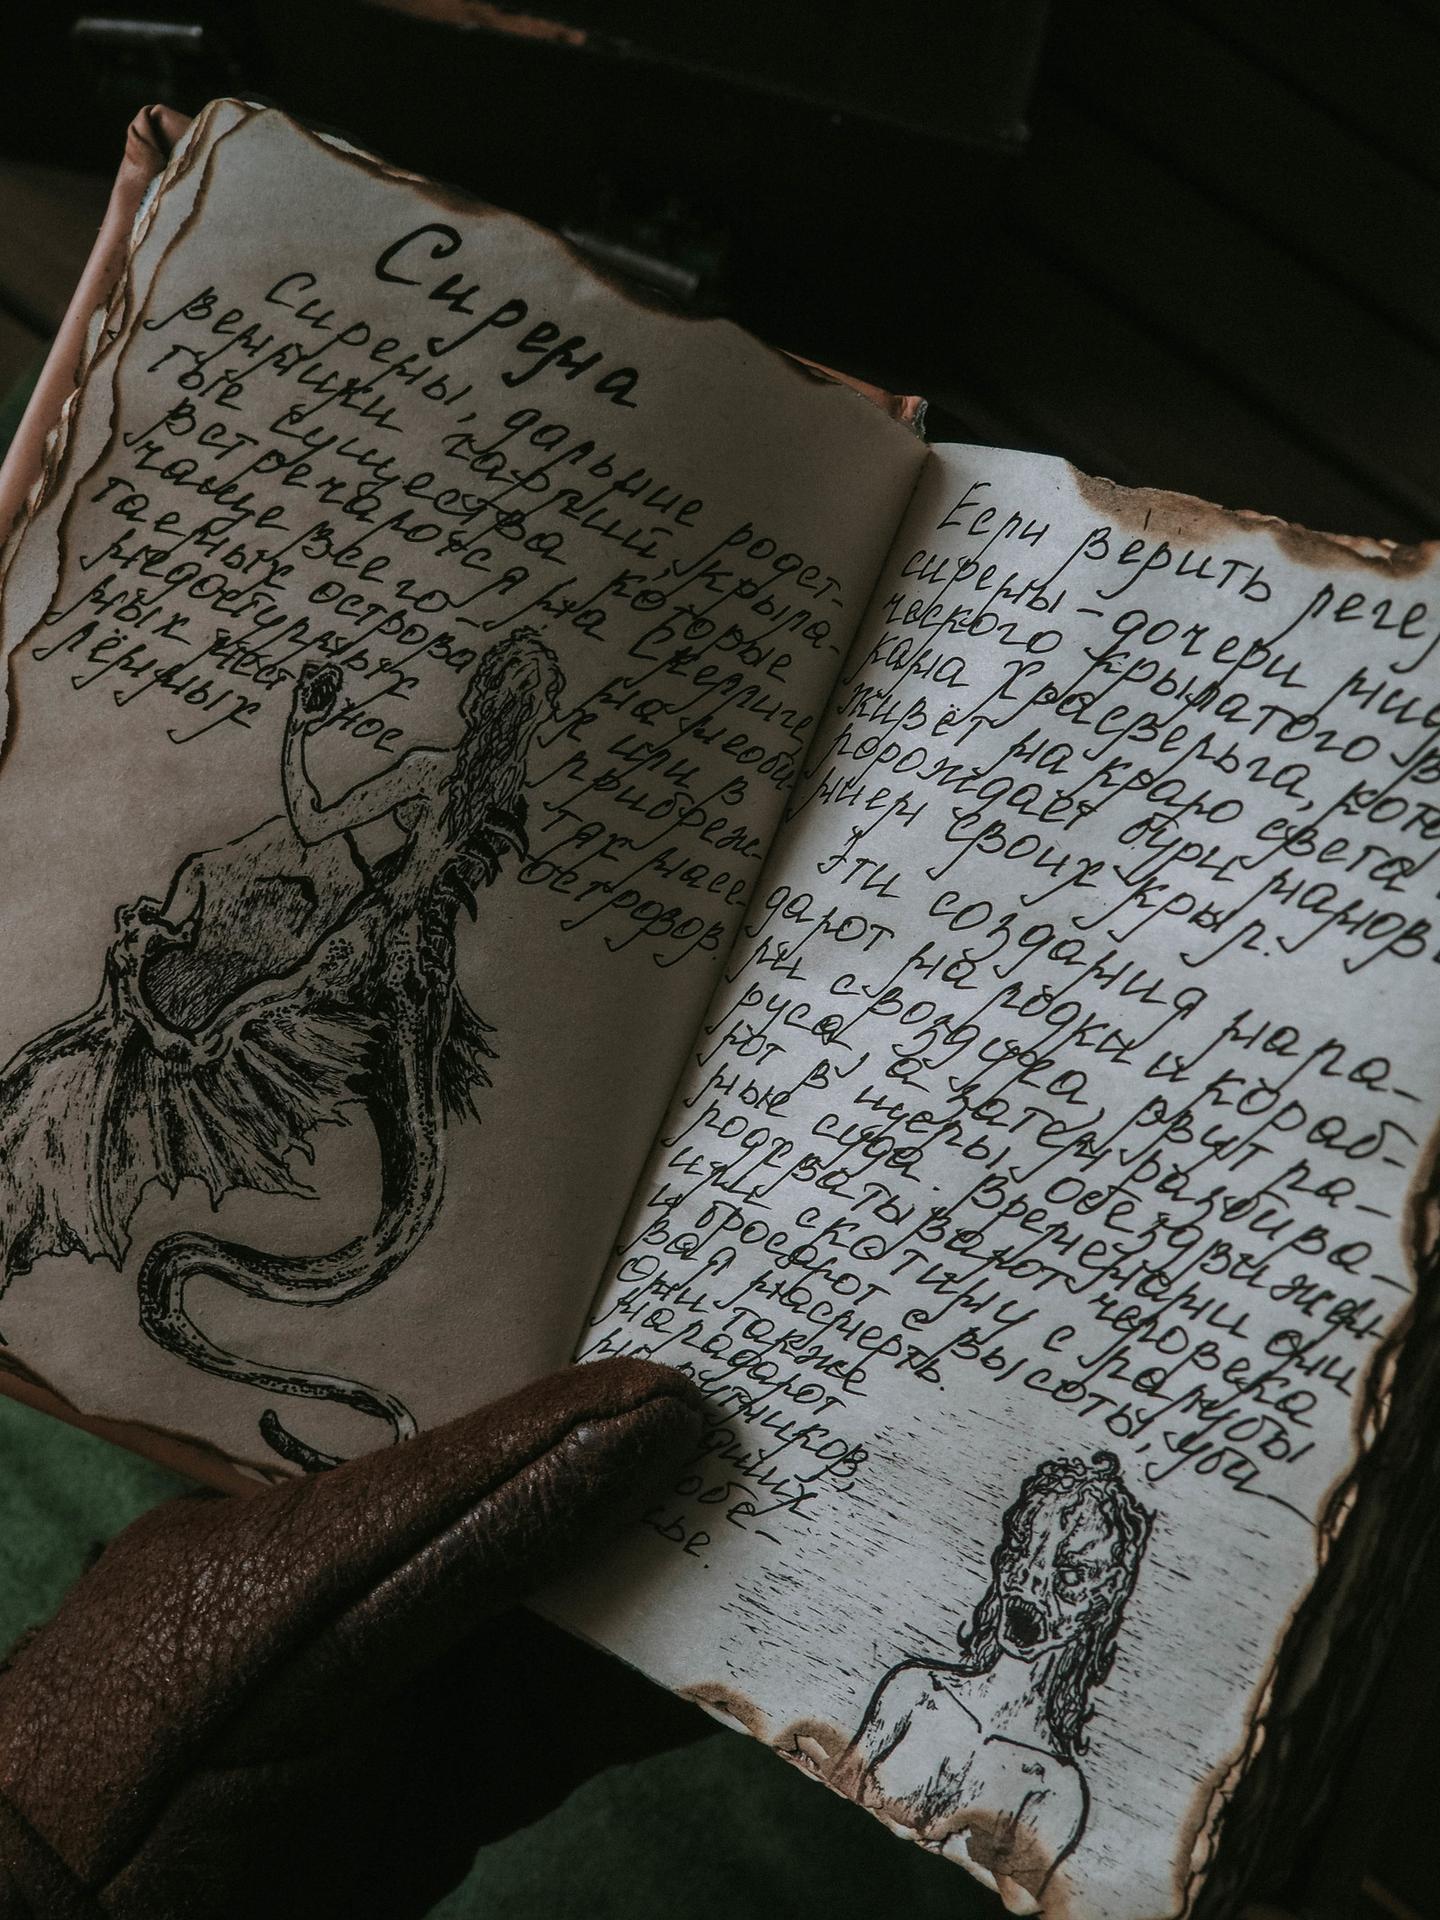 Сирена
Сирены, дальние родст-
венники гарпий, крыла-
тые существа, которые
встречаются на Скеллиге
чаще всего на необи-
таемых островах или в
недоступных прибреж-
ных местностях насе-
лённых островов.
Если верить леге
сирены - дочери
ческого крылатого
кана Хрэсвельга, кото
живёт на краю света
порождает бури
нием своих крыл.
Эти создания напа-
дают на лодки и кораб-
ли с воздуха, рвут па-
руса, а затем разбива-
ют в щепы обездвижен-
ные суда. Временами они
подхватывают человека
или скотину с палубы
и бросают с высоты, уби-
вая насмерть.
Они также
нападают
на путников,